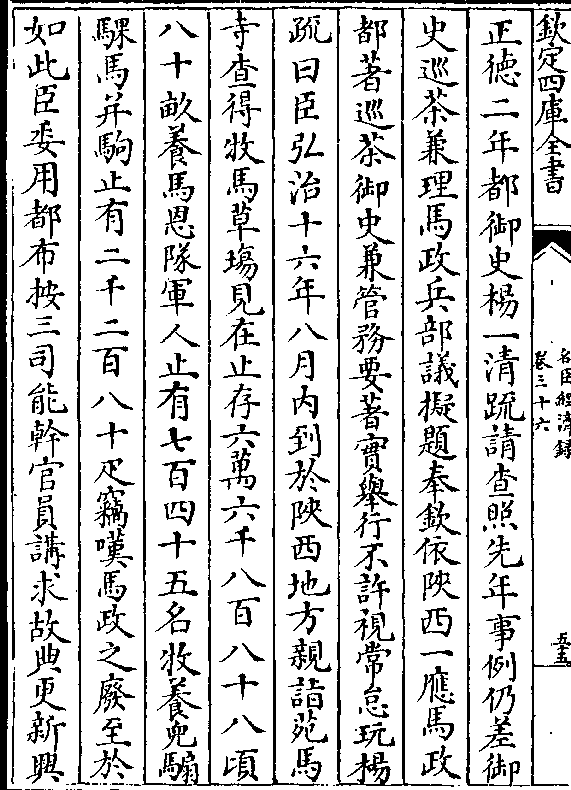 欽定四庫全書
名臣經濟録
卷三十六
五五
正德二年都御史楊一清䟽請查照先年事例仍差御
史巡茶兼理馬政兵部議擬題奉欽依陜西一應馬政
都著巡茶御史兼管務要著實舉行不許視常怠玩楊
疏曰臣弘治十六年八月内到於陜西地方親詣苑馬
寺查得牧馬草塲見在止存六萬六千八百八十八頃
八十畝養馬恩隊軍人止有七百四十五名牧養兒騸
騍馬并駒止有二千二百八十疋竊嘆馬政之廢至於
如此臣委用都布按三司能幹官員講求故典更新興